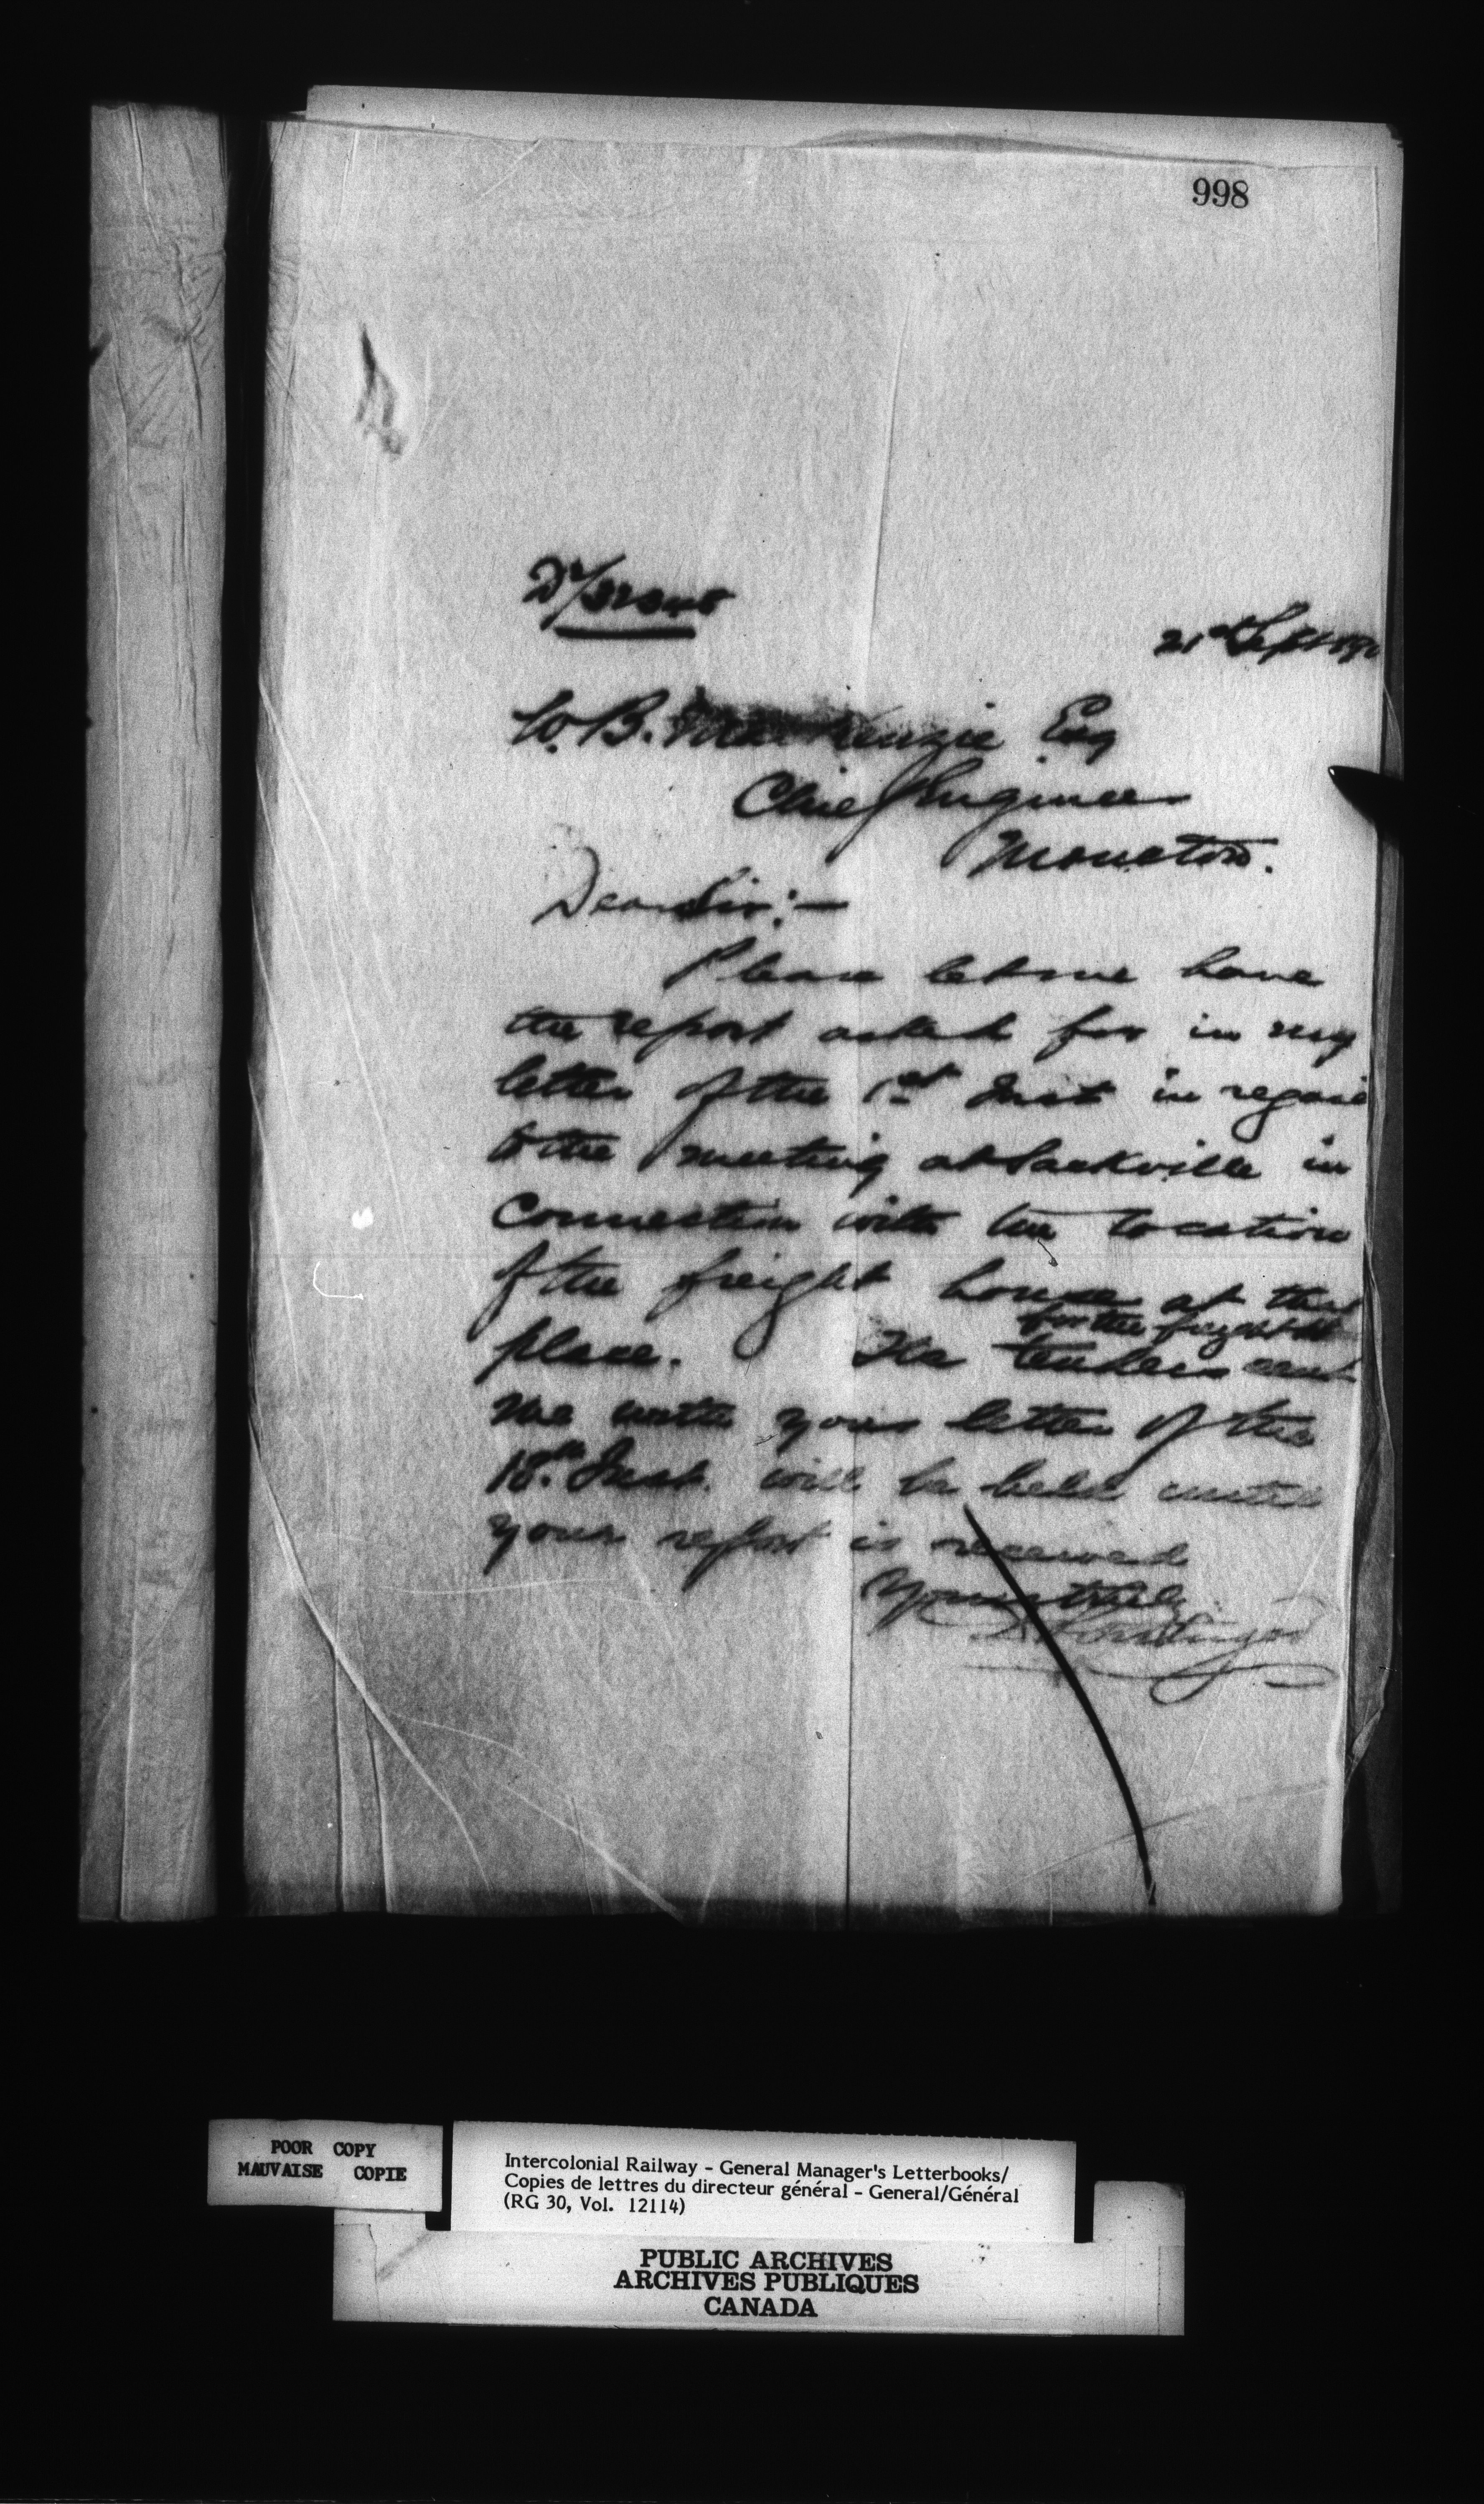 998
21st Sept
W. B. MacKenzie Esq
Chief Engineer
Moncton.
Dear Sir:—
Please let me have
the report asked for in my
letter of the 1st Inst in regard
to the meeting at Sackville in
connection with the location
of the freight house at that
for the freight
place. The tenders sent
me with your letter of the
18th Inst. will be held until
your report is received
Yours truly
D Pottinger
POOR COPY
MAUVAISE COPIE
Intercolonial Railway - General Manager's Letterbooks/
Copies de lettres du directeur général - General/Général
(RG 30, Vol. 12114)
PUBLIC ARCHIVES
ARCHIVES PUBLIQUES
CANADA